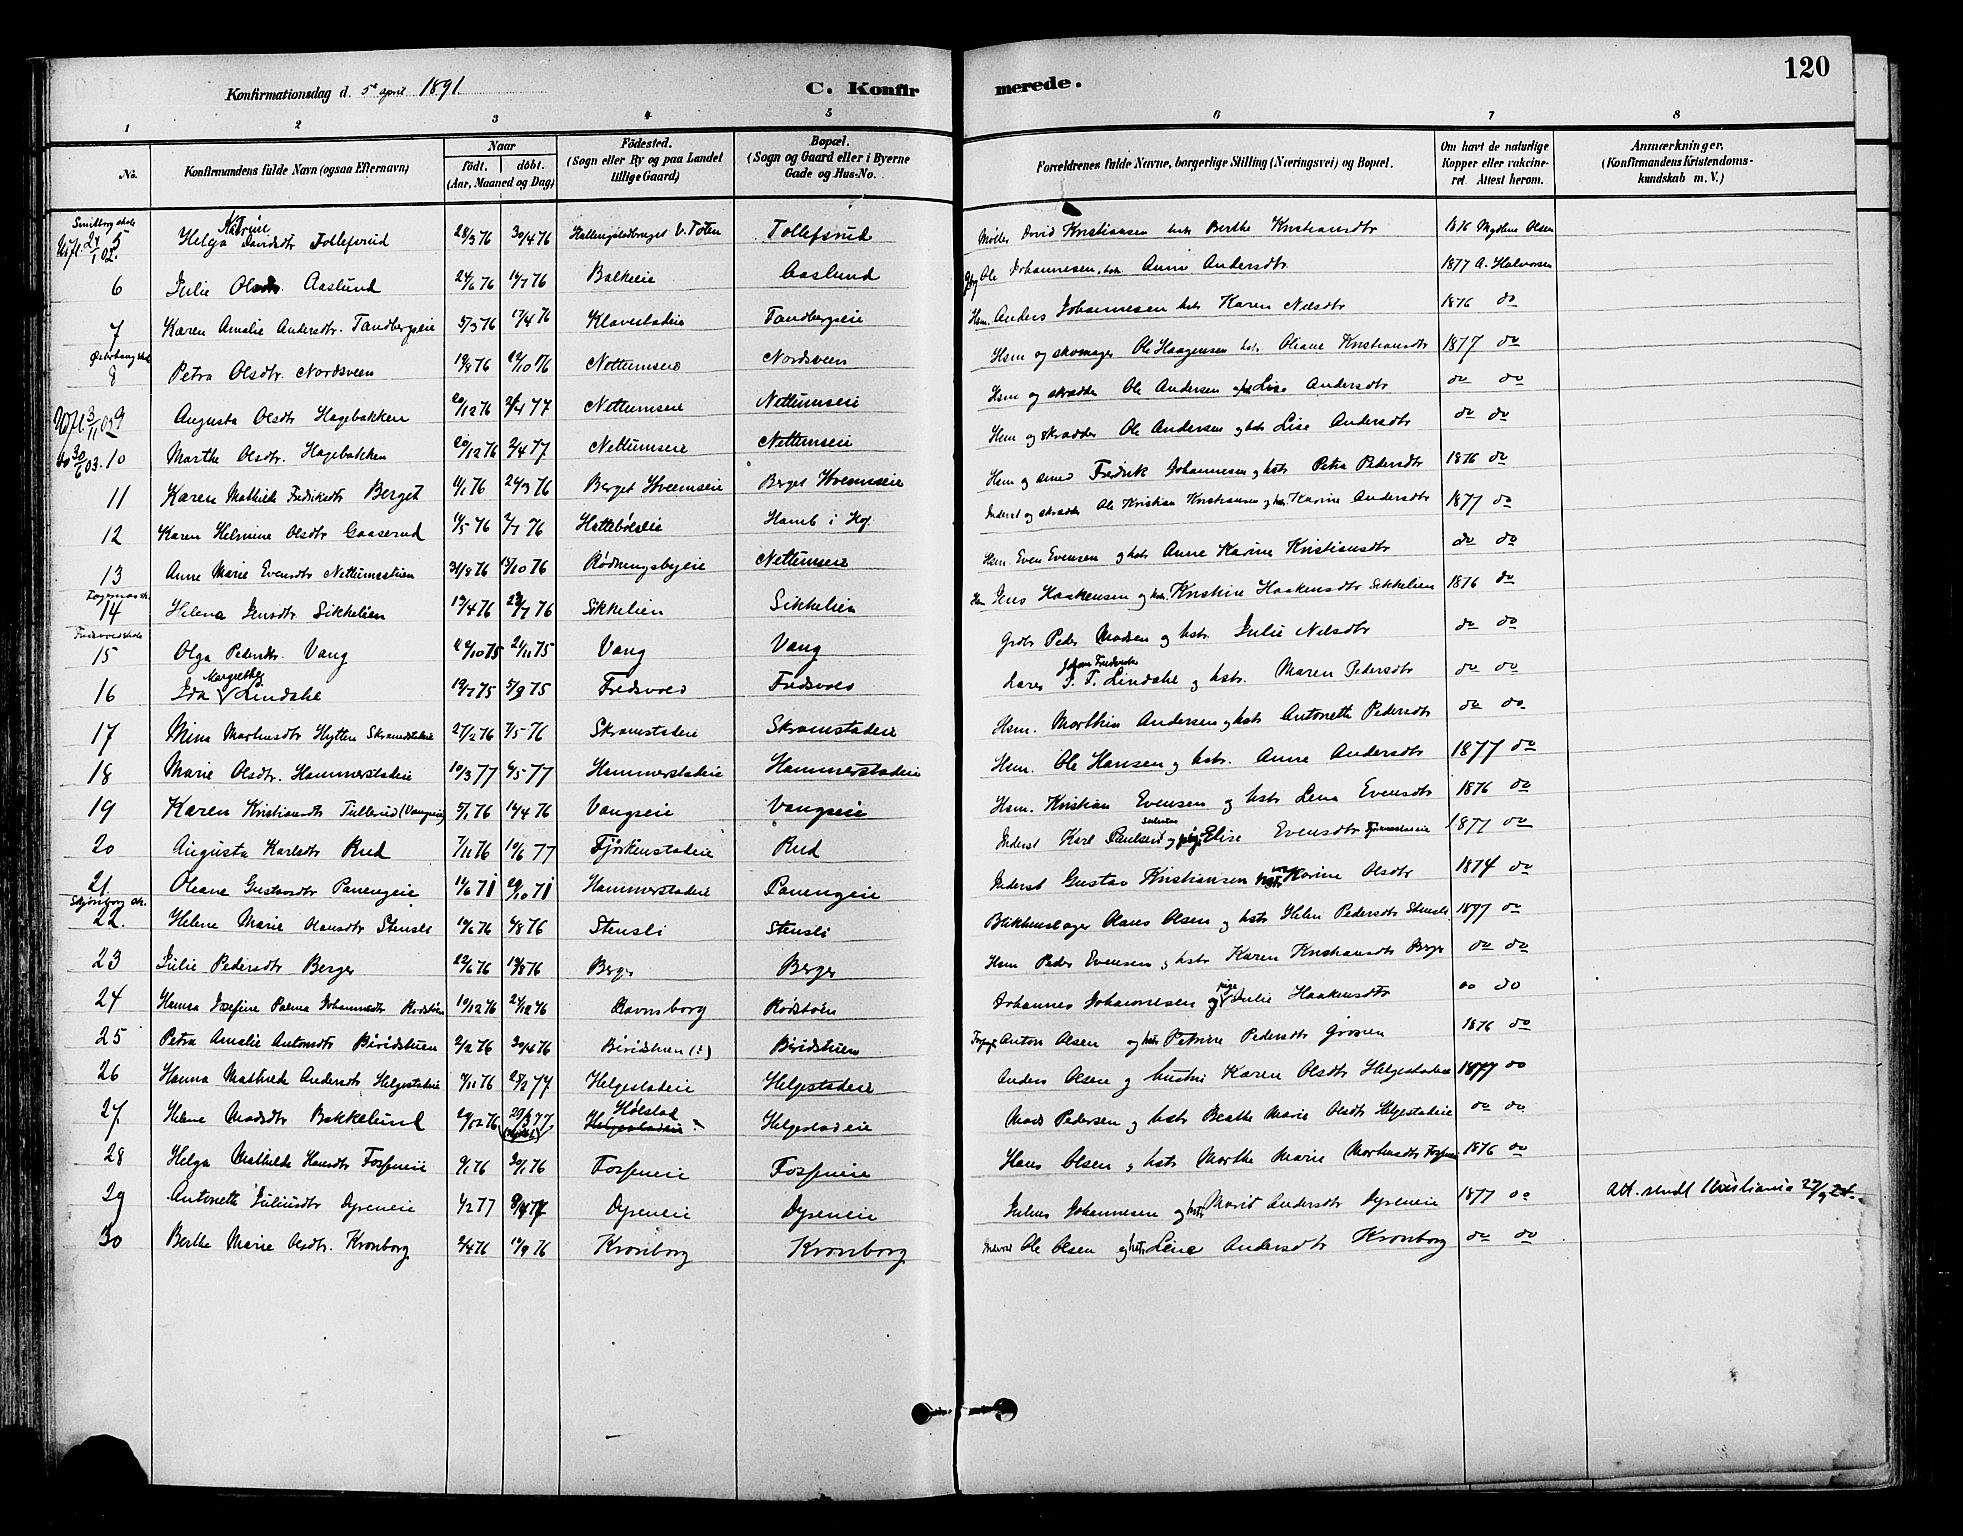 120
Konfirmationsdag d. 5te april 1891.
C. Konfirmerede.
1 2 3 4 5 6 7 8
No.
Konfirmandens fulde Navn (ogsaa Efternavn)
Naar
födt. döbt.
(Aar, Maaned og Dag)
Födested.
(Sogn eller By og paa Landet
tillige Gaard)
Bopæl.
(Sogn og Gaard eller i Byerne
Gade og Hus-No.
Forældrenes fulde Navne, borgerlige Stilling (Næringsvei) og Bopæl.
Om havt de naturlige
Kopper eller vakcine-
ret. Attest herom.
Anmærkninger.
(Konfirmandens Kristendoms-
kundskab m. V.)
5 Helga Davidsdtr Tollefsrud 28/3 76 30/4 76 V. Toten Tollefsrud Møller David Kristiansen Berthe Kristiansdtr 1876 Olsen
6 Julie Olsdtr. Aaslund 24/6 76 16/7 76 Balkeeie Aaslund Ole Johannesen Anne Andersdtr 1877 A. Halvorsen
7 Karen Amalie Andersdtr. Tandbergseie 5/3 76 17/4 76 Klavestadeie Tandbergseie Hsm. Anders Johannesen hstr Karen Nilsdtr 1876 do
8 Petra Olsdtr. Nordsveen Nettumseie Nordsveen Hsm og skomager Ole Haagensen hstr. Oliane Kristiansdtr 1877 do
9 Augusta Olsdtr Hagebakken 20/12 76 2/4 77 Nettumseie Nettumseie Hsm og skrædder Ole Andersen Lise Andersdtr do do
10 Marthe Olsdtr. Hagebakken 20/12 76 2/4 77 Nettumseie Nettumseie Hsm og skrædder Ole Andersen og hstr Lise Andersdtr do do
11 Karen Mathilde Fredriksdtr Berget 26/3 76 Berget Hveemseie Berget Hveemseie Hsm og smed Fredrik Johannesen og hstr Petra Pedersdtr 1876 do
12 Karen Helmine Olsdtr Gaaserud 2/7 76 Hattebøleie Hamb i Hof Inderst og skrædder Ole Kristian Kristiansen og hstr Karine Andersdtr 1877 do
13 Anne Marie Evensdtr Nettumsstuen 31/8 76 15/10 76 Rødningsbyeie Nettumseie Hsm Even Evensen og hstr Anne Karine Kristiansdtr do do
14 Helena Jensdtr Sikkelien 19/4 76 Sikkelien Sikkelien Hsm Jens Haakensen og hstr. Kristine Haakensdtr Sikkelien 1876 do
15 Olga Pedersdtr. Vang 21/11 75 Vang Vang Grdbr Peder Madsen og hstr. Julie Nilsdtr do do
16 Ida Margrethe Lindahl 19/7 75 5/9 75 Fredsvold Fredsvold Lærer J. F. Lindahl og hstr. Maren Pedersdtr do do
17 Mina Marthinsdtr Hytten Skramstadeie 27/2 76 7/5 76 Skramstadeie Skramstadeie Hsm. Marthin Andersen og hstr Antonette Pedersdtr do do
18 Marie Olsdtr. Hammerstadeie 10/3 77 6/5 77 Hammerstadeie Hammerstadeie Hsm. Ole Hansen og hstr. Anne Andersdtr 1877 do
19 Karen Kristiansdtr Tullerud (Vangseie) 5/1 76 14/4 76 Vangseie Vangseie Hsm. Kristian Evensen og hstr Lena Evensdtr 1876 do
20 Augusta Karlsdtr Rud 7/11 76 10/6 77 Fjørkenstadeie Rud Inderst Karl Paulsen og pige Elise Evensdtr 1877 do
21. Oleane Gustavsdtr Panengeie 11/6 71 29/10 71 Hammerstadeie Panengeie Inderst Gustav Kristiansen Karine Olsdtr 1874 do
22. Helene Marie Olausdtr Stensli 6/8 76 Stensli Stensli Blikkenslager Olaus Olsen og hstr Helen Pedersdtr Stensli 1877 do
23 Julie Pedersdtr Berger 13/8 76 Berger Berger Hsm Peder Evensen og hstr Karen Kristiansdtr Berger do do
24 Hanna Josefine Palma Johannesdtr Rødstøen 10/12 76 24/12 76 Ravnsborg Rødstøen Johannes Johannesen og pige Julie Haakensdtr do do
25 Petra Amalie Antonsdtr Biridstuen 2/2 76 30/4 76 Biridstuen (?) Biridstuen Anton Olsen og hstr Petrine Pedersdtr 1876 do
26 Hanna Mathilde Andersdtr Helgestadeie 9/11 76 25/2 77 Helgestadeie Helgestadeie Anders Olsen og hustru Karen Olsdtr Helgestadeie 1877 do
27. Helene Madsdtr Bakkelund 29/12 76 Hølstad Helgestadeie Helgestadeie Mads Pedersen og hstr Beathe Marie Olsdtr Helgestadeie do do
28 Helga Mathilde Hansdtr Fossneie 9/1 76 30/1 76 Fossneie Fossneie Hans Olsen og hstr Marthe Marie Marthinsdtr 1876 do
29 Antonette Juliusdtr Dyreneie 1/2 77 Dyreneie Dyreneie Julius Johannesen og hstr Marit Andersdtr Dyreneie 1877 do Att. sendt Kristiania
30 Berthe Marie Olsdtr. Kronborg 2/4 76 17/9 76 Kronborg Kronborg Ole Olsen og hstr Lene Andersdtr Kronborg do do